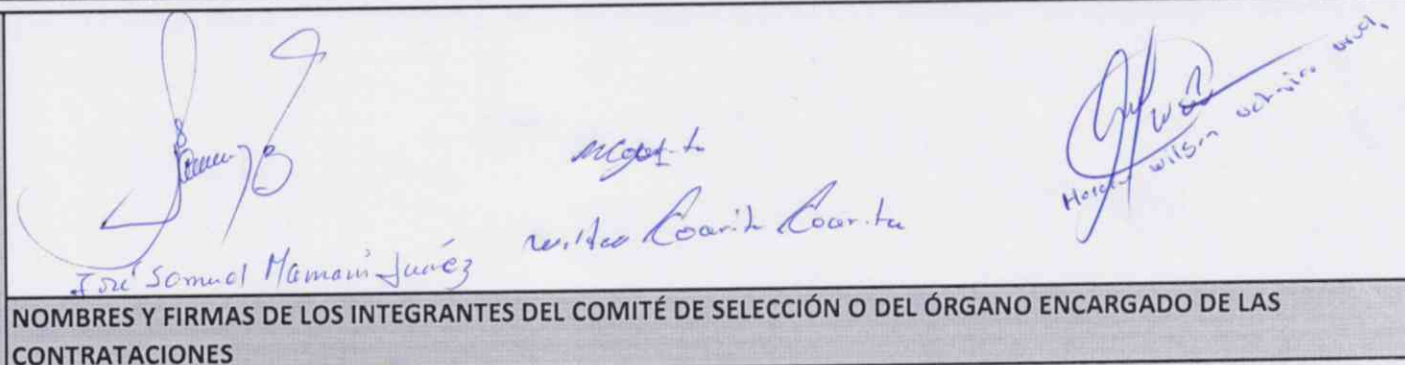 José Samuel Mamani Juárez
Coarita Coarita
wilson
NOMBRES Y FIRMAS DE LOS INTEGRANTES DEL COMITÉ DE SELECCIÓN O DEL ÓRGANO ENCARGADO DE LAS
CONTRATACIONES